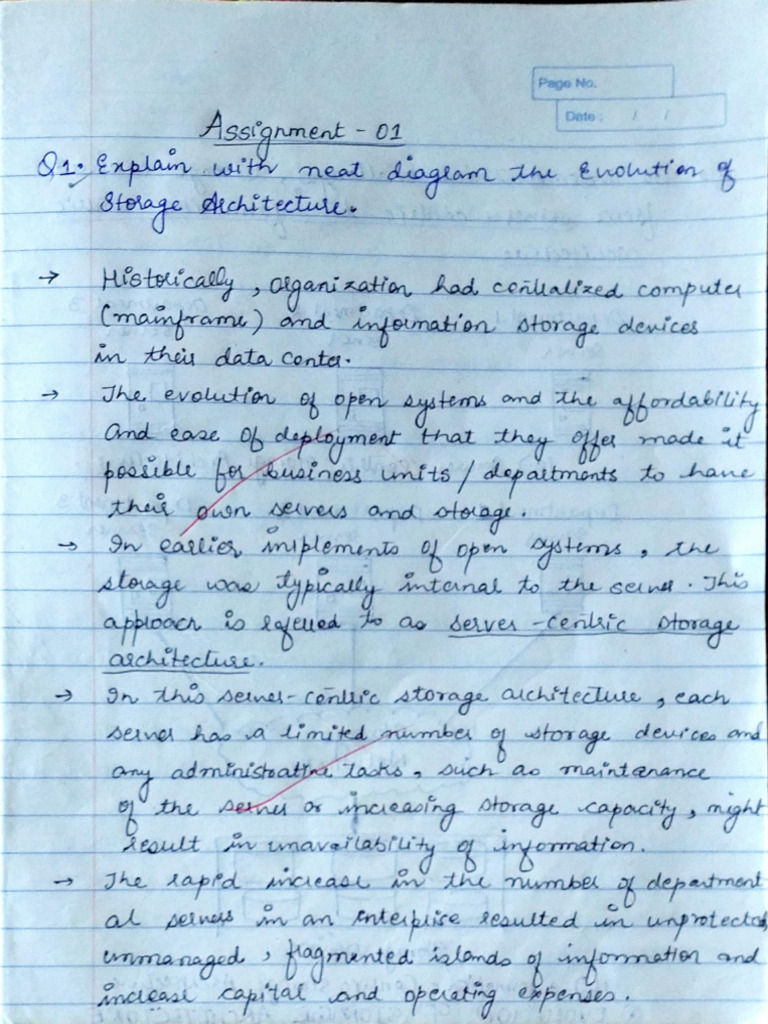 Page No.
Date : / /
Assignment - 01
Q1. Explain with neat diagram the Evolution of
Storage Architecture.
→ Historically, organization had centralized computer
(mainframe) and information storage devices
in their data center.
→ The evolution of open systems and the affordability
and ease of deployment that they offer made it
possible for business units / departments to have
their own servers and storage.
→ In earlier implements of open systems, the
storage was typically internal to the server. This
approach is referred to as server-centric storage
architecture.
→ In this server-centric storage architecture, each
server has a limited number of storage devices and
any administrative tasks, such as maintenance
of the server or increasing storage capacity, might
result in unavailability of information.
→ The rapid increase in the number of department
al servers in an enterprise resulted in unprotected,
unmanaged, fragmented islands of information and
increase capital and operating expenses.